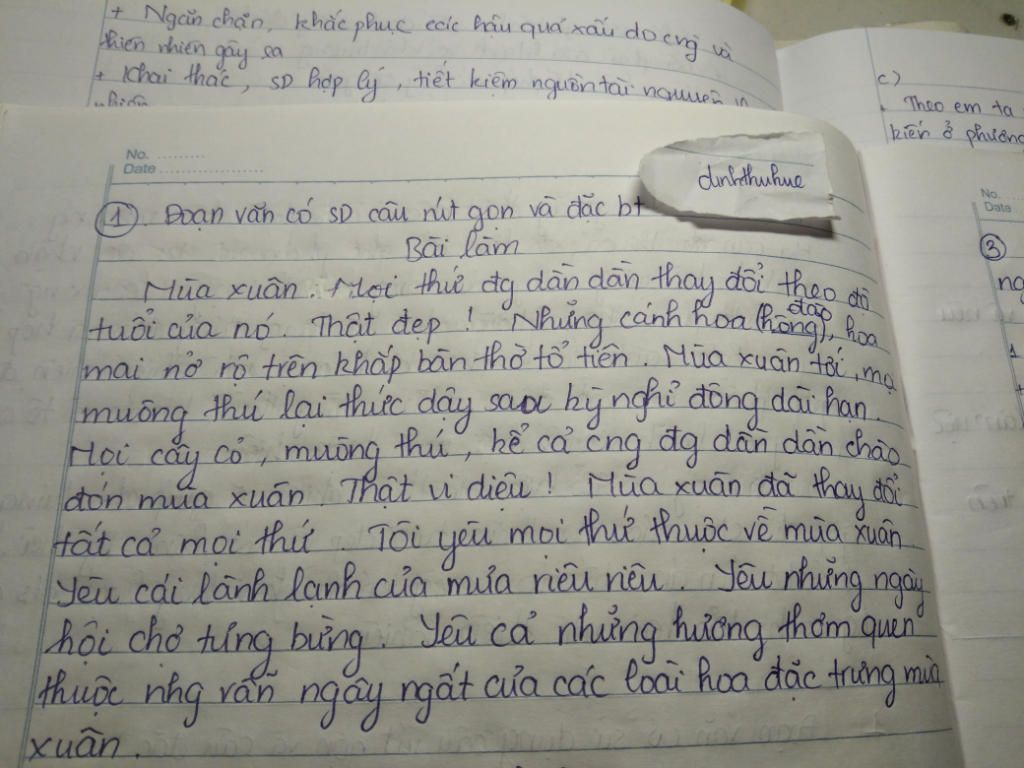 + Ngăn chặn, khắc phục các hậu quả xấu do cng và
thiên nhiên gây sa
+ Khai thác, SD hợp lý, tiết kiệm nguồn tài nguyên
c)
Theo em ta
kiến ở phương
No. ..........
Date ....................
dinhthuhue
No.
Date
① Đoạn văn có SD câu rút gọn và đặc bt
③
Bài làm
Mùa xuân. Mọi thứ đg dần dần thay đổi theo độ
tuổi của nó. Thật đẹp ! Những cánh hoa (hồng) đào, hoa
mai nở rộ trên khắp bàn thờ tổ tiên. Mùa xuân tới, mọ
muông thú lại thức dậy sau kỳ nghỉ đông dài hạn.
Mọi cây cỏ, muông thú, kể cả cng đg dần dần chào
đón mùa xuân. Thật vi diệu ! Mùa xuân đã thay đổi
tất cả mọi thứ. Tôi yêu mọi thứ thuộc về mùa xuân
Yêu cái lành lạnh của mưa riêu riêu. Yêu những ngày
hội chợ tưng bừng. Yêu cả những hương thơm quen
thuộc nhg vẫn ngây ngất của các loài hoa đặc trưng mùa
xuân.